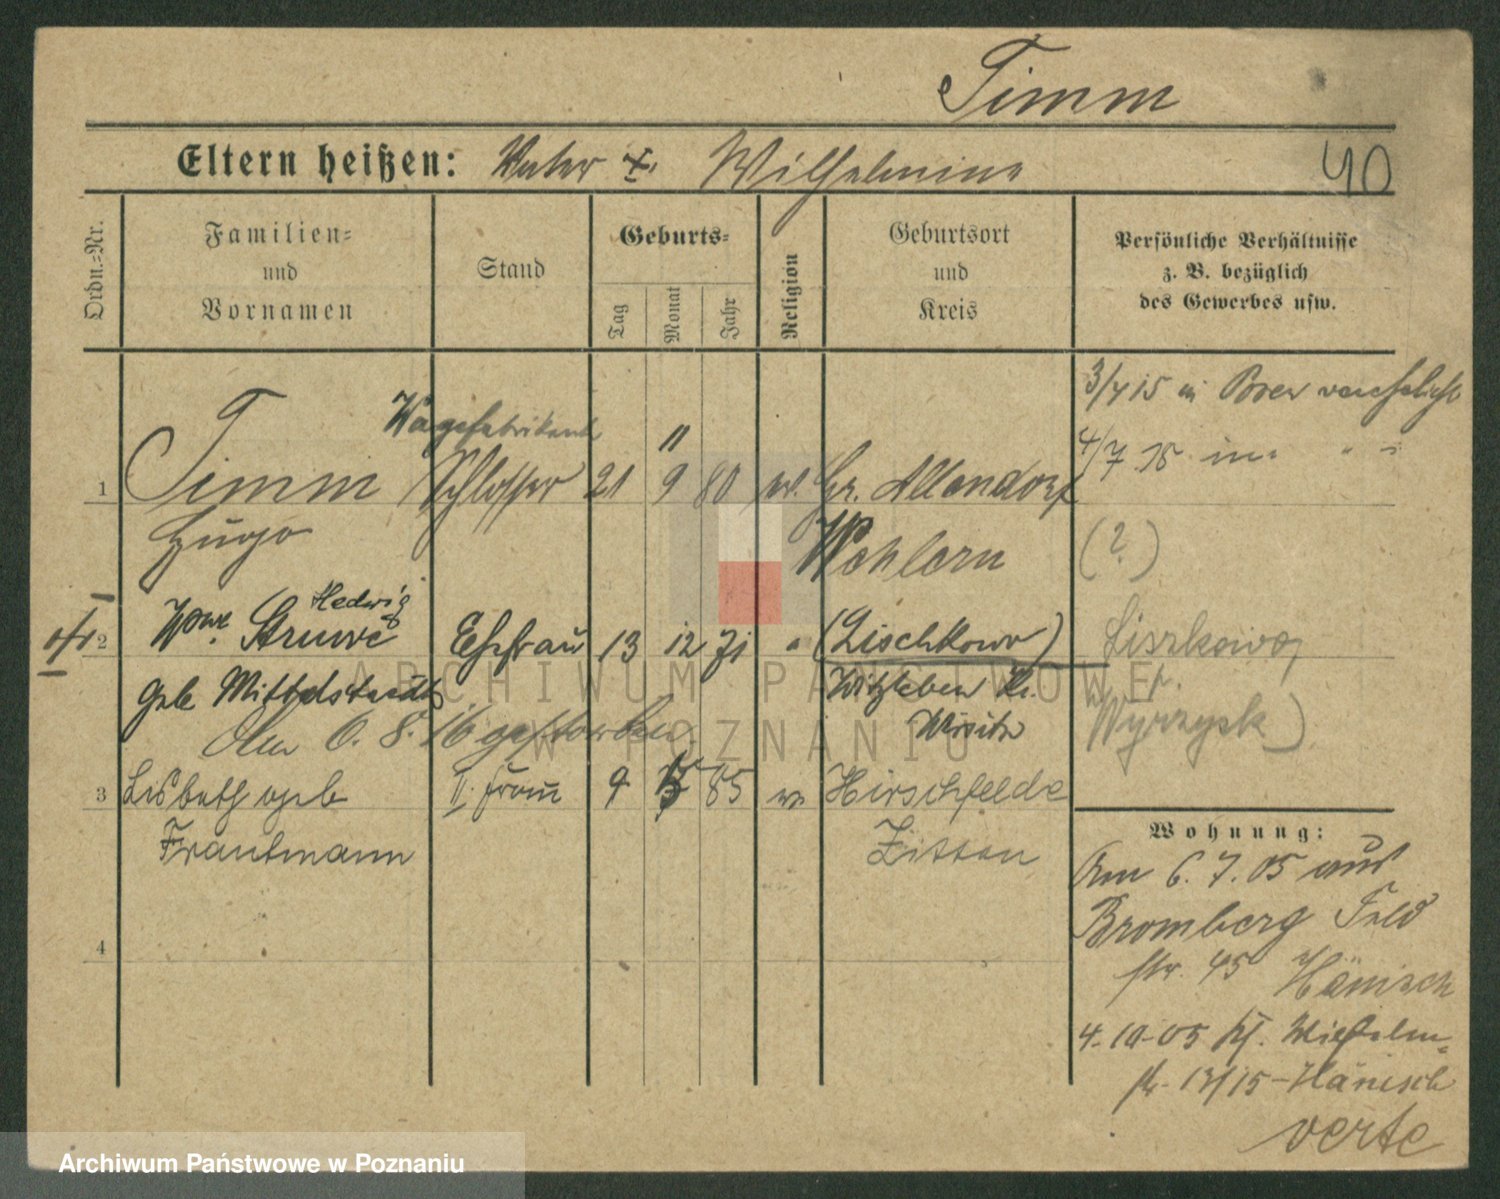 Timm
Eltern heißen: Vater †. Wilhelmine
40
Ordn.-Nr.
Familien-
und
Vornamen
Stand
Geburts-
Tag
Monat
Jahr
Religion
Geburtsort
und
Kreis
Persönliche Verhältnisse
z. B. bezüglich
des Gewerbes usw.
3/7 15 in verehelicht
4/7 15 in " "
Wagefabrikant
11
1 Timm Schlosser 21 9 80 ev. Gr. Allendorf
Hugo Wehlern
(?)
Hedwig
2 Wwe. Struwe Ehefrau 13 12 71 " (Lischkowo) Liszkowo
geb Mittelstaedt Witzleben Kr.
Wirsitz
Wyrzysk)
Am 6. 8. 16 gestorben.
3 Lisbeth geb II. Frau 9 85 ev Hirschfelde
Trautmann Zittau
4
Wohnung:
Am 6. 7. 05 aus
Bromberg Feld
str. 45 Hänisch
4-10-05 Wilhelm-
str. 13/15-Hänisch
verte
ARCHIWUM PAŃSTWOWE
W POZNANIU
Archiwum Państwowe w Poznaniu